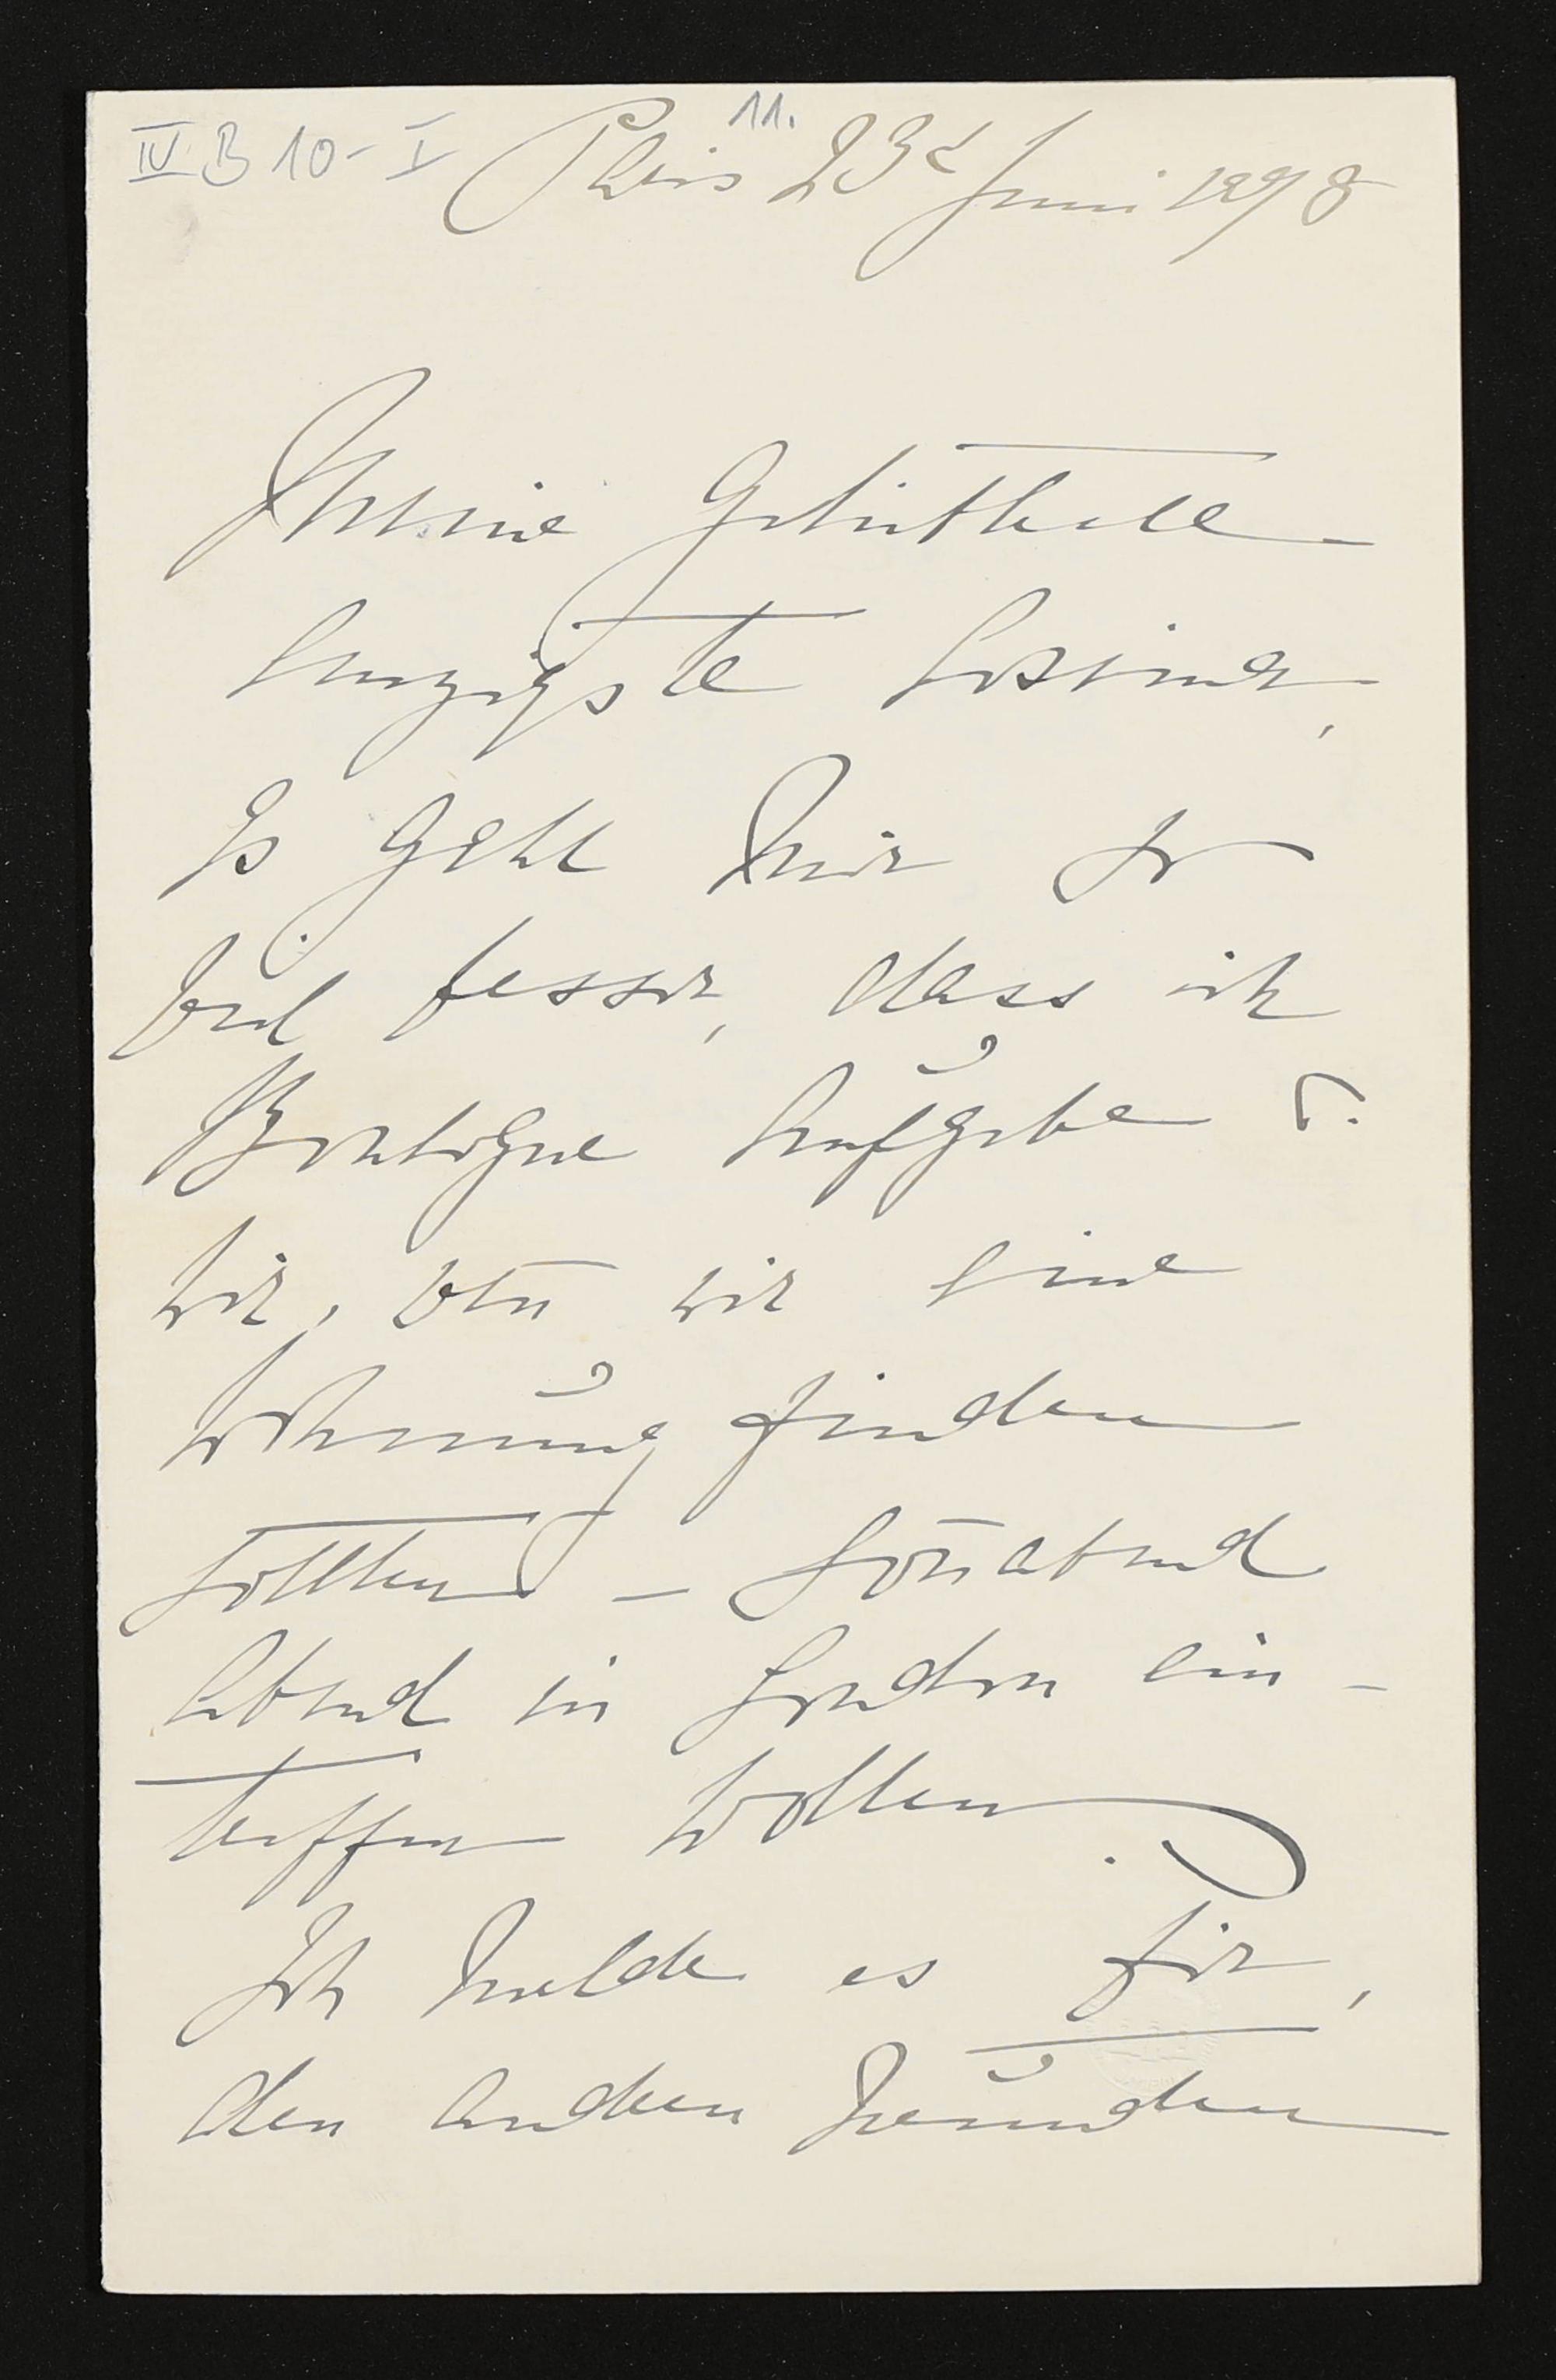 IV B 10-I 11.
Paris 23t Juni 1898
Meine Geliebteste
einzigste Cosima,
Es geht mir so
viel besser, dass ich
Boulogne aufgebe u.
wir, wen̄ wir eine
Wohnung finden
sollten – Son̄abend
Abend in London ein-
treffen wollen.
Ich melde es Dir,
den anderen Freunden